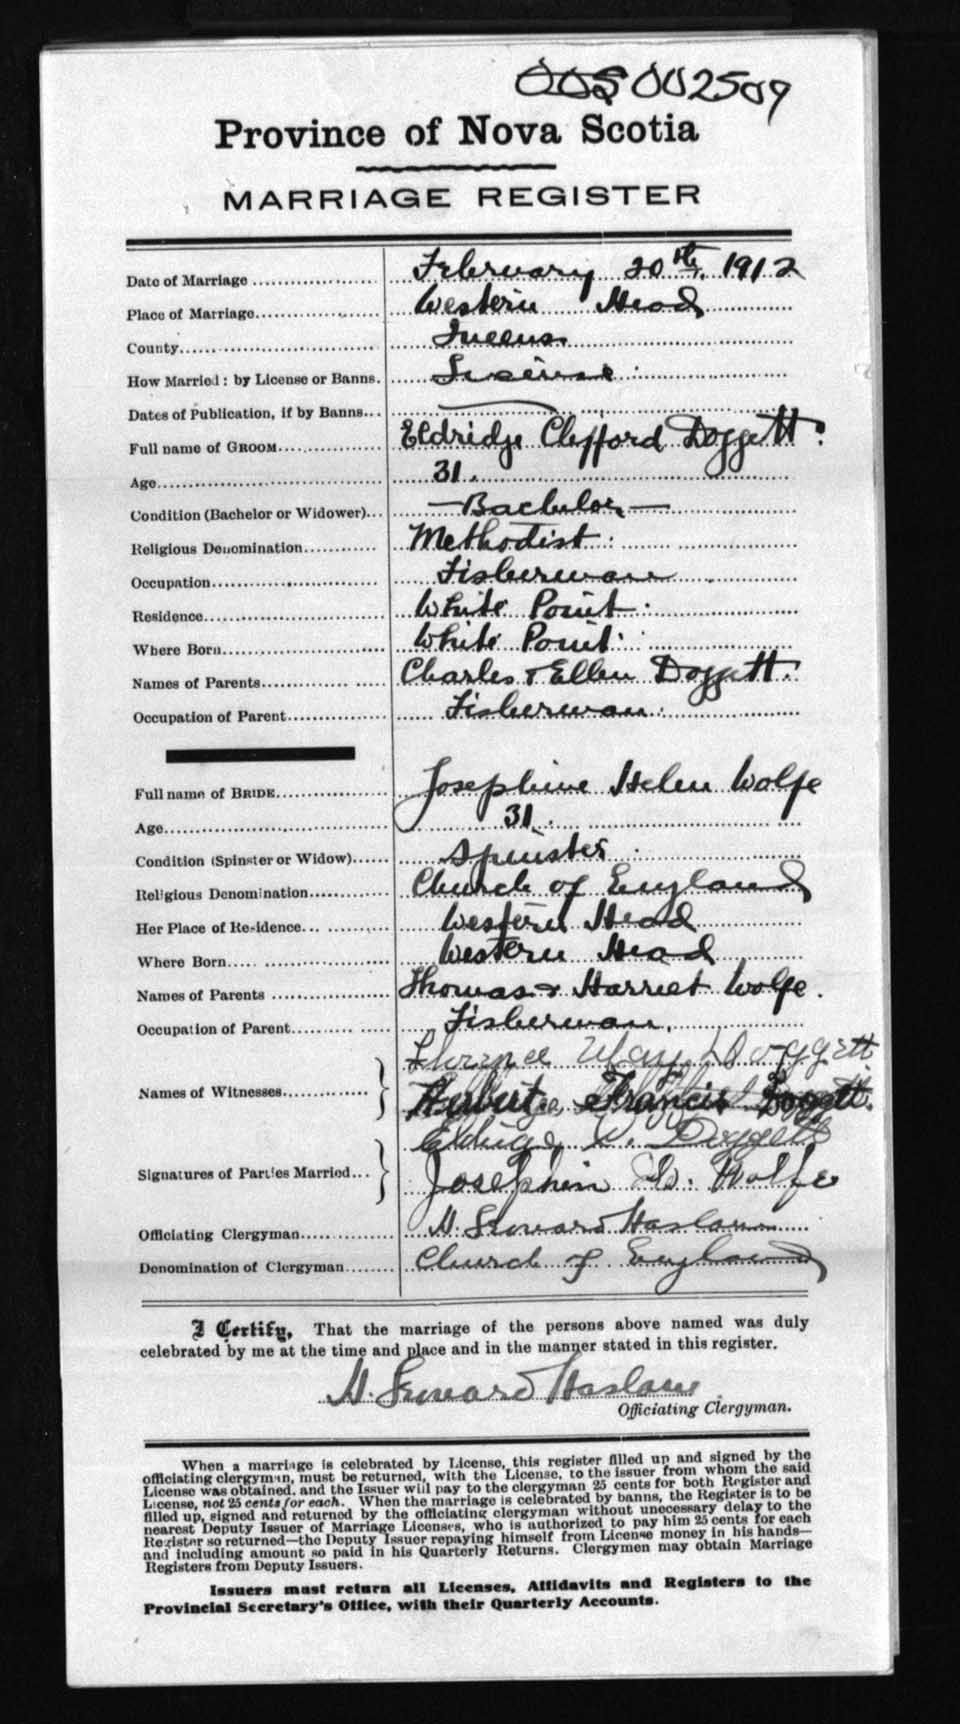 002509
Province of Nova Scotia
MARRIAGE REGISTER
Date of Marriage February 20th, 1912
Place of Marriage Western Head
County Queens
How Married: by License or Banns. License
Dates of Publication, if by Banns
Full name of GROOM Eldridge Clifford Doggett.
Age 31.
Condition (Bachelor or Widower) Bachelor
Religious Denomination Methodist
Occupation Fisherman
Residence White Point
Where Born White Point
Names of Parents Charles & Ellen Doggett.
Occupation of Parent Fisherman
Full name of BRIDE Josephine Helen Wolfe
Age 31.
Condition (Spinster or Widow) Spinster
Religious Denomination Church of England
Her Place of Residence Western Head
Where Born Western Head
Names of Parents Thomas & Harriet Wolfe.
Occupation of Parent Fisherman.
Florence May Doggett
Names of Witnesses Herbert Francis Doggett.
Doggett
Signatures of Parties Married Josephin H. Wolfe
Officiating Clergyman Haslam
Denomination of Clergyman Church of England
I Certify, That the marriage of the persons above named was duly
celebrated by me at the time and place and in the manner stated in this register.
Haslam
Officiating Clergyman.
When a marriage is celebrated by License, this register filled up and signed by the
officiating clergyman, must be returned, with the License, to the issuer from whom the said
License was obtained, and the Issuer will pay to the clergyman 25 cents for both Register and
License, not 25 cents for each. When the marriage is celebrated by banns, the Register is to be
filled up, signed and returned by the officiating clergyman without unnecessary delay to the
nearest Deputy Issuer of Marriage Licenses, who is authorized to pay him 25 cents for each
Register so returned—the Deputy Issuer repaying himself from License money in his hands—
and including amount so paid in his Quarterly Returns. Clergymen may obtain Marriage
Registers from Deputy Issuers.
Issuers must return all Licenses, Affidavits and Registers to the
Provincial Secretary's Office, with their Quarterly Accounts.